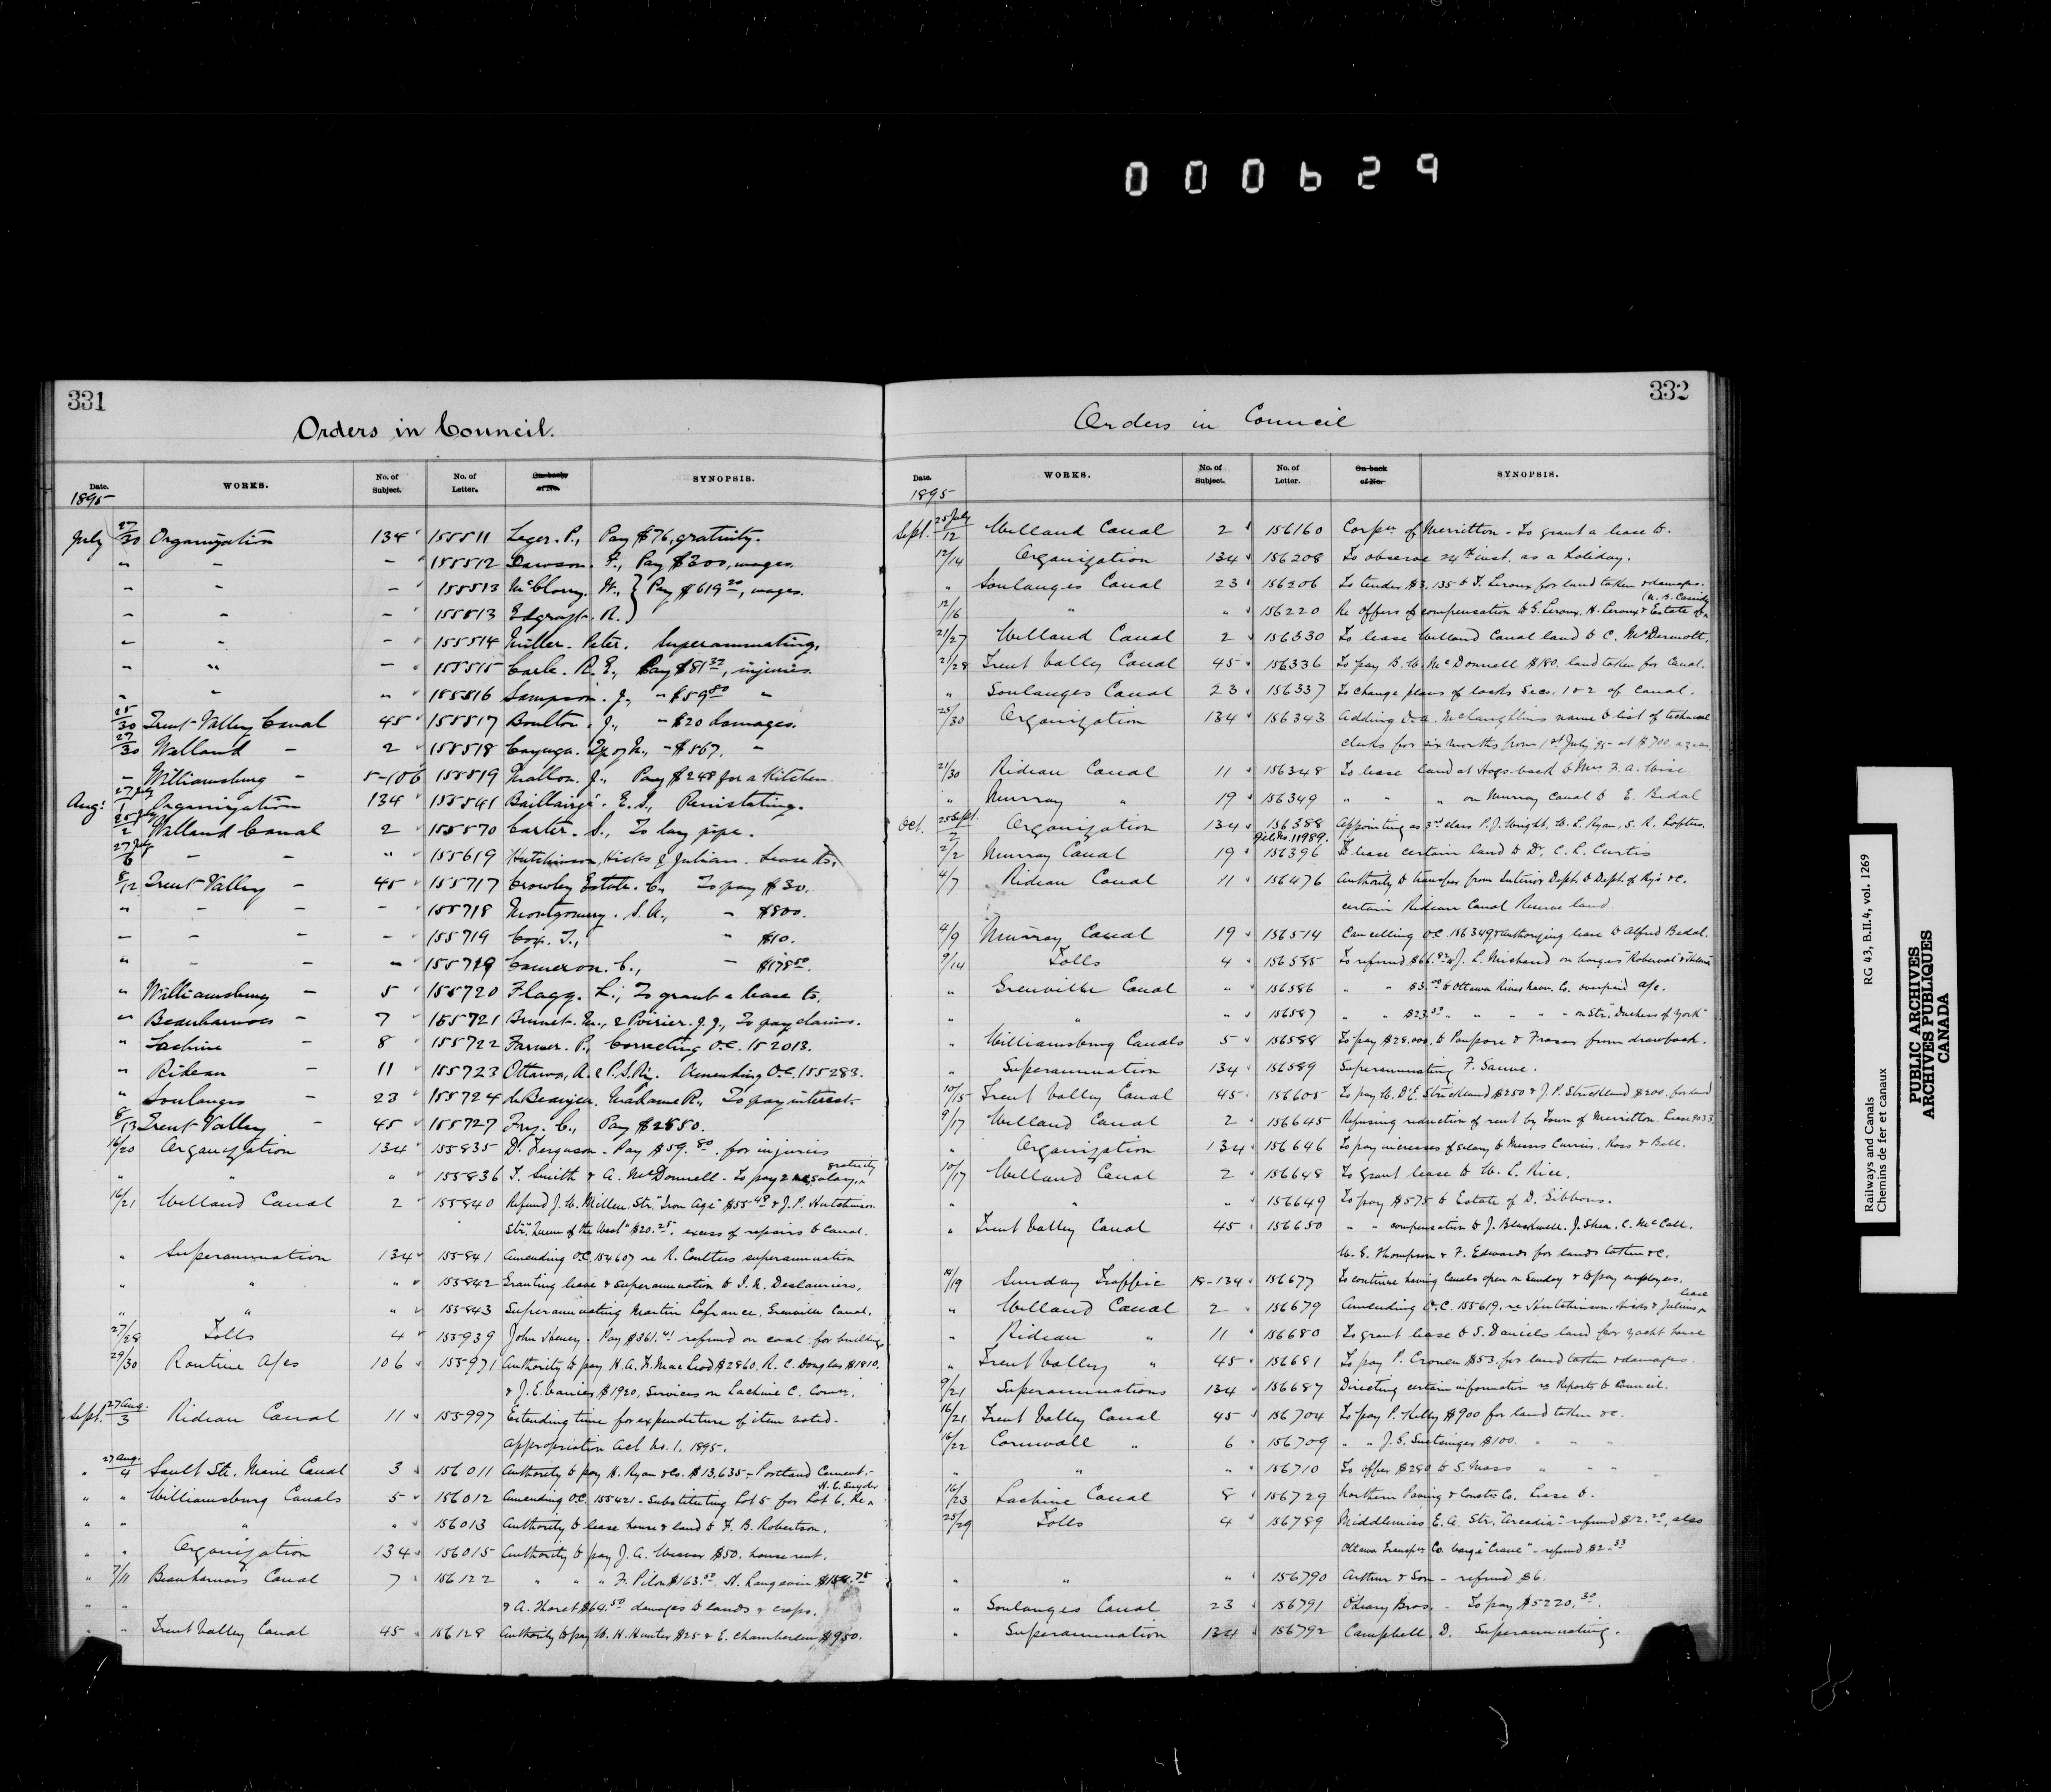 000629
331
Orders in Council.
Date. WORKS. No. of Subject. No. of Letter. On back of No. SYNOPSIS.
1895
July 27/30 Organization 134 155511 Leger. P., Pay $76, gratuity.
" - - 155512 Dawson. F., Pay $300, wages.
" - - 155513 McClory. W., } Pay $619 20, wages.
- - - 155513 R. }
- - - 155514 Miller. Peter. Superannuating.
" " - 155515 Earle. R. E., Pay $81 32, injuries.
" " " 155516 Sampson. J., " $59 80 "
25/30 Trent Valley Canal 45 155517 Boulton. J., - $20 damages.
27/30 Welland - 2 155518 Cayuga. Tp of N., - $567, "
- Williamsburg - 5-106 155519 Mallon. J., Pay $248 for a Kitchen
Aug: 27 July/1 Organization 134 155541 Baillairgé. E. S., Reinstating.
25 July/2 Welland Canal 2 155570 Carter. S., To lay pipe.
27 July/6 - - " 155619 Hutchinson, Hicks & Julian. Lease to.
8/12 Trent Valley - 45 155717 Crowley Estate. C., To pay $30.
" - - - 155718 Montgomery. S. A., - $800.
- - - - 155719 Cox. T., " $10.
" - - - 155719 Cameron. C., - $175 50.
" Williamsburg - 5 155720 Flagg. L., To grant a lease to.
" Beauharnois - 7 155721 Brunet. M., & Poirier. J. J., To pay claims.
" Lachine - 8 155722 Farmer. P., Correcting O.C. 152013.
" Rideau - 11 155723 Ottawa, A. & P.S. Ry. Amending O.C. 155283.
" Soulanges - 23 155724 de Beaujeu. Madame R., To pay interest.
8/13 Trent Valley - 45 155727 Fry. C., Pay $2550.
16/20 Organization 134 155835 D. Ferguson - Pay $59.80 for injuries
" " " 155836 T. Smith & A. McDonnell - To pay 2 mos salary, gratuity
16/21 Welland Canal 2 155840 Refund J. W. Millen. Str. "Iron Age" $55 49 & J. P. Hutchinson
Str. "Queen of the West" $20.25. excess of repairs to Canal.
" Superannuation 134 155841 Amending O.C. 154607 re R. Coulters superannuation
" " " 155842 Granting leave & superannuation to I. N. Deslauriers.
" " " 155843 Superannuating Martin Lafrance, Grenville Canal.
27/28 Tolls 4 155939 John Heney - Pay $361.41 refund on coal for buildings
29/30 Routine A/cs 106 155971 Authority to pay H. A. F. MacLeod $2860, R. C. Douglas $1810,
& J. E. Vanier $1920, Services on Lachine C. Comn.
Sept. 27 Aug./3 Rideau Canal 11 155997 Extending time for expenditure of item voted -
Appropriation Act No. 1. 1895.
" 27 Aug./4 Sault Ste. Marie Canal 3 156011 Authority to pay H. Ryan & Co. $13,635 - Portland Cement. -
" " Williamsburg Canals 5 156012 Amending O.C. 155421 - Substituting Lot 5 for Lot 6, Re H. C. Snyder
" " " " 156013 Authority to lease house & land to F. B. Robertson.
" " Organization 134 156015 Authority to pay J. A. Weaver $50. house rent.
" 7/11 Beauharnois Canal 7 156122 " " " F. Pilon $163.50, H. Langevin
" " & A. Thoret $64.50 damages to lands & crops.
" " Trent Valley Canal 45 156128 Authority to pay W. H. Hunter $25 & E. Chamberlen $950.
332
Orders in Council
Date. WORKS. No. of Subject. No. of Letter. On back of No. SYNOPSIS.
1895
Sept. 25 July/12 Welland Canal 2 156160 Corpn of Merritton - To grant a lease to.
12/14 Organization 134 156208 To observe 24th inst. as a holiday.
" Soulanges Canal 23 156206 To tender $3,135 to T. Leroux for land taken & damages.
12/16 " " 156220 Re offers of compensation to G. Leroux, H. Leroux & Estate of (N. B. Cassidy
21/27 Welland Canal 2 156330 To lease Welland Canal land to C. McDermott.
21/28 Trent Valley Canal 45 156336 To pay B. W. McDonnell $180. land taken for Canal.
" Soulanges Canal 23 156337 To change plans of locks Secs. 1 & 2 of Canal.
25/30 Organization 134 156343 Adding D. A. McLaughlins name to list of technical
clerks for six months from 1st July 95 at $700. a year.
21/30 Rideau Canal 11 156348 To lease land at Hogs-back to Mrs F. A. Wise
" Murray " 19 156349 " " " on Murray Canal to E. Bedal
Oct. 25 Sept./2 Organization 134 156388 Appointing as 3rd class P. J. Wright, W. L. Ryan, S. R. Loftus.
File No 11989.
2/2 Murray Canal 19 156396 To lease certain land to Dr. C. L. Curtis
4/7 Rideau Canal 11 156476 Authority to transfer from Interior Dept. to Dept. of Rys &c.
certain Rideau Canal Reserve land.
4/9 Murray Canal 19 156514 Cancelling O.C. 156349 & authorizing lease to Alfred Bedal.
9/14 Tolls 4 156585 To refund to J. L. Michaud on barges "Roberval" &
" Grenville Canal " 156586 " " to Ottawa River Navn. Co. overpaid a/c.
" " " 156587 " " $23.50 " " " " " on Str. "Duchess of York"
" Williamsburg Canals 5 156588 To pay $28,000, to Poupore & Fraser from drawback.
" Superannuation 134 156589 Superannuating F. Sauve.
10/15 Trent Valley Canal 45 156605 To pay W. D'E. Strickland $250 & J. P. Strickland $200. for land
9/17 Welland Canal 2 156645 Refusing reduction of rent by Town of Merritton. Lease 9033
" Organization 134 156646 To pay increases of salary to Messrs Currier, Ross & Bell.
10/17 Welland Canal 2 156648 To grant lease to W. L. Rice.
" " " 156649 To pay $575 to Estate of D. Gibbons.
" Trent Valley Canal 45 156650 " " compensation to J. Blackwell. J. Shea. C. McCall.
W. G. Thompson & F. Edwards for lands taken &c.
14/19 Sunday Traffic 18-134 156677 To continue having Canals open on Sunday & to pay employees.
" Welland Canal 2 156679 Amending O.C. 155619. re Hutchinson, Hicks & Julians lease
" Rideau " 11 156680 To grant lease to S. Daniels land for yacht house
" Trent Valley " 45 156681 To pay P. Cronen $53. for land taken & damages.
9/21 Superannuations 134 156687 Directing certain information re Reports to Council.
16/21 Trent Valley Canal 45 156704 To pay P. Kelly $900 for land taken &c.
16/22 Cornwall " 6 156709 " " J. G. Snetsinger $100. " " "
" " " 156710 To offer $280 to S. Moss " " "
16/23 Lachine Canal 8 156729 Northern Paving & Constn Co. Lease to.
25/29 Tolls 4 156789 Middlemiss E. A. Str. "Arcadia" - refund $12.20, also
Ottawa Transpn Co. barge "Crane" - refund $2.33
" " " 156790 Arthur & Son - refund $6.
" Soulanges Canal 23 156791 O'Leary Bros. - To pay $5220.30.
" Superannuation 134 156792 Campbell, D. Superannuating.
Railways and Canals RG 43, B.II.4, vol. 1269
Chemins de fer et canaux
PUBLIC ARCHIVES
ARCHIVES PUBLIQUES
CANADA